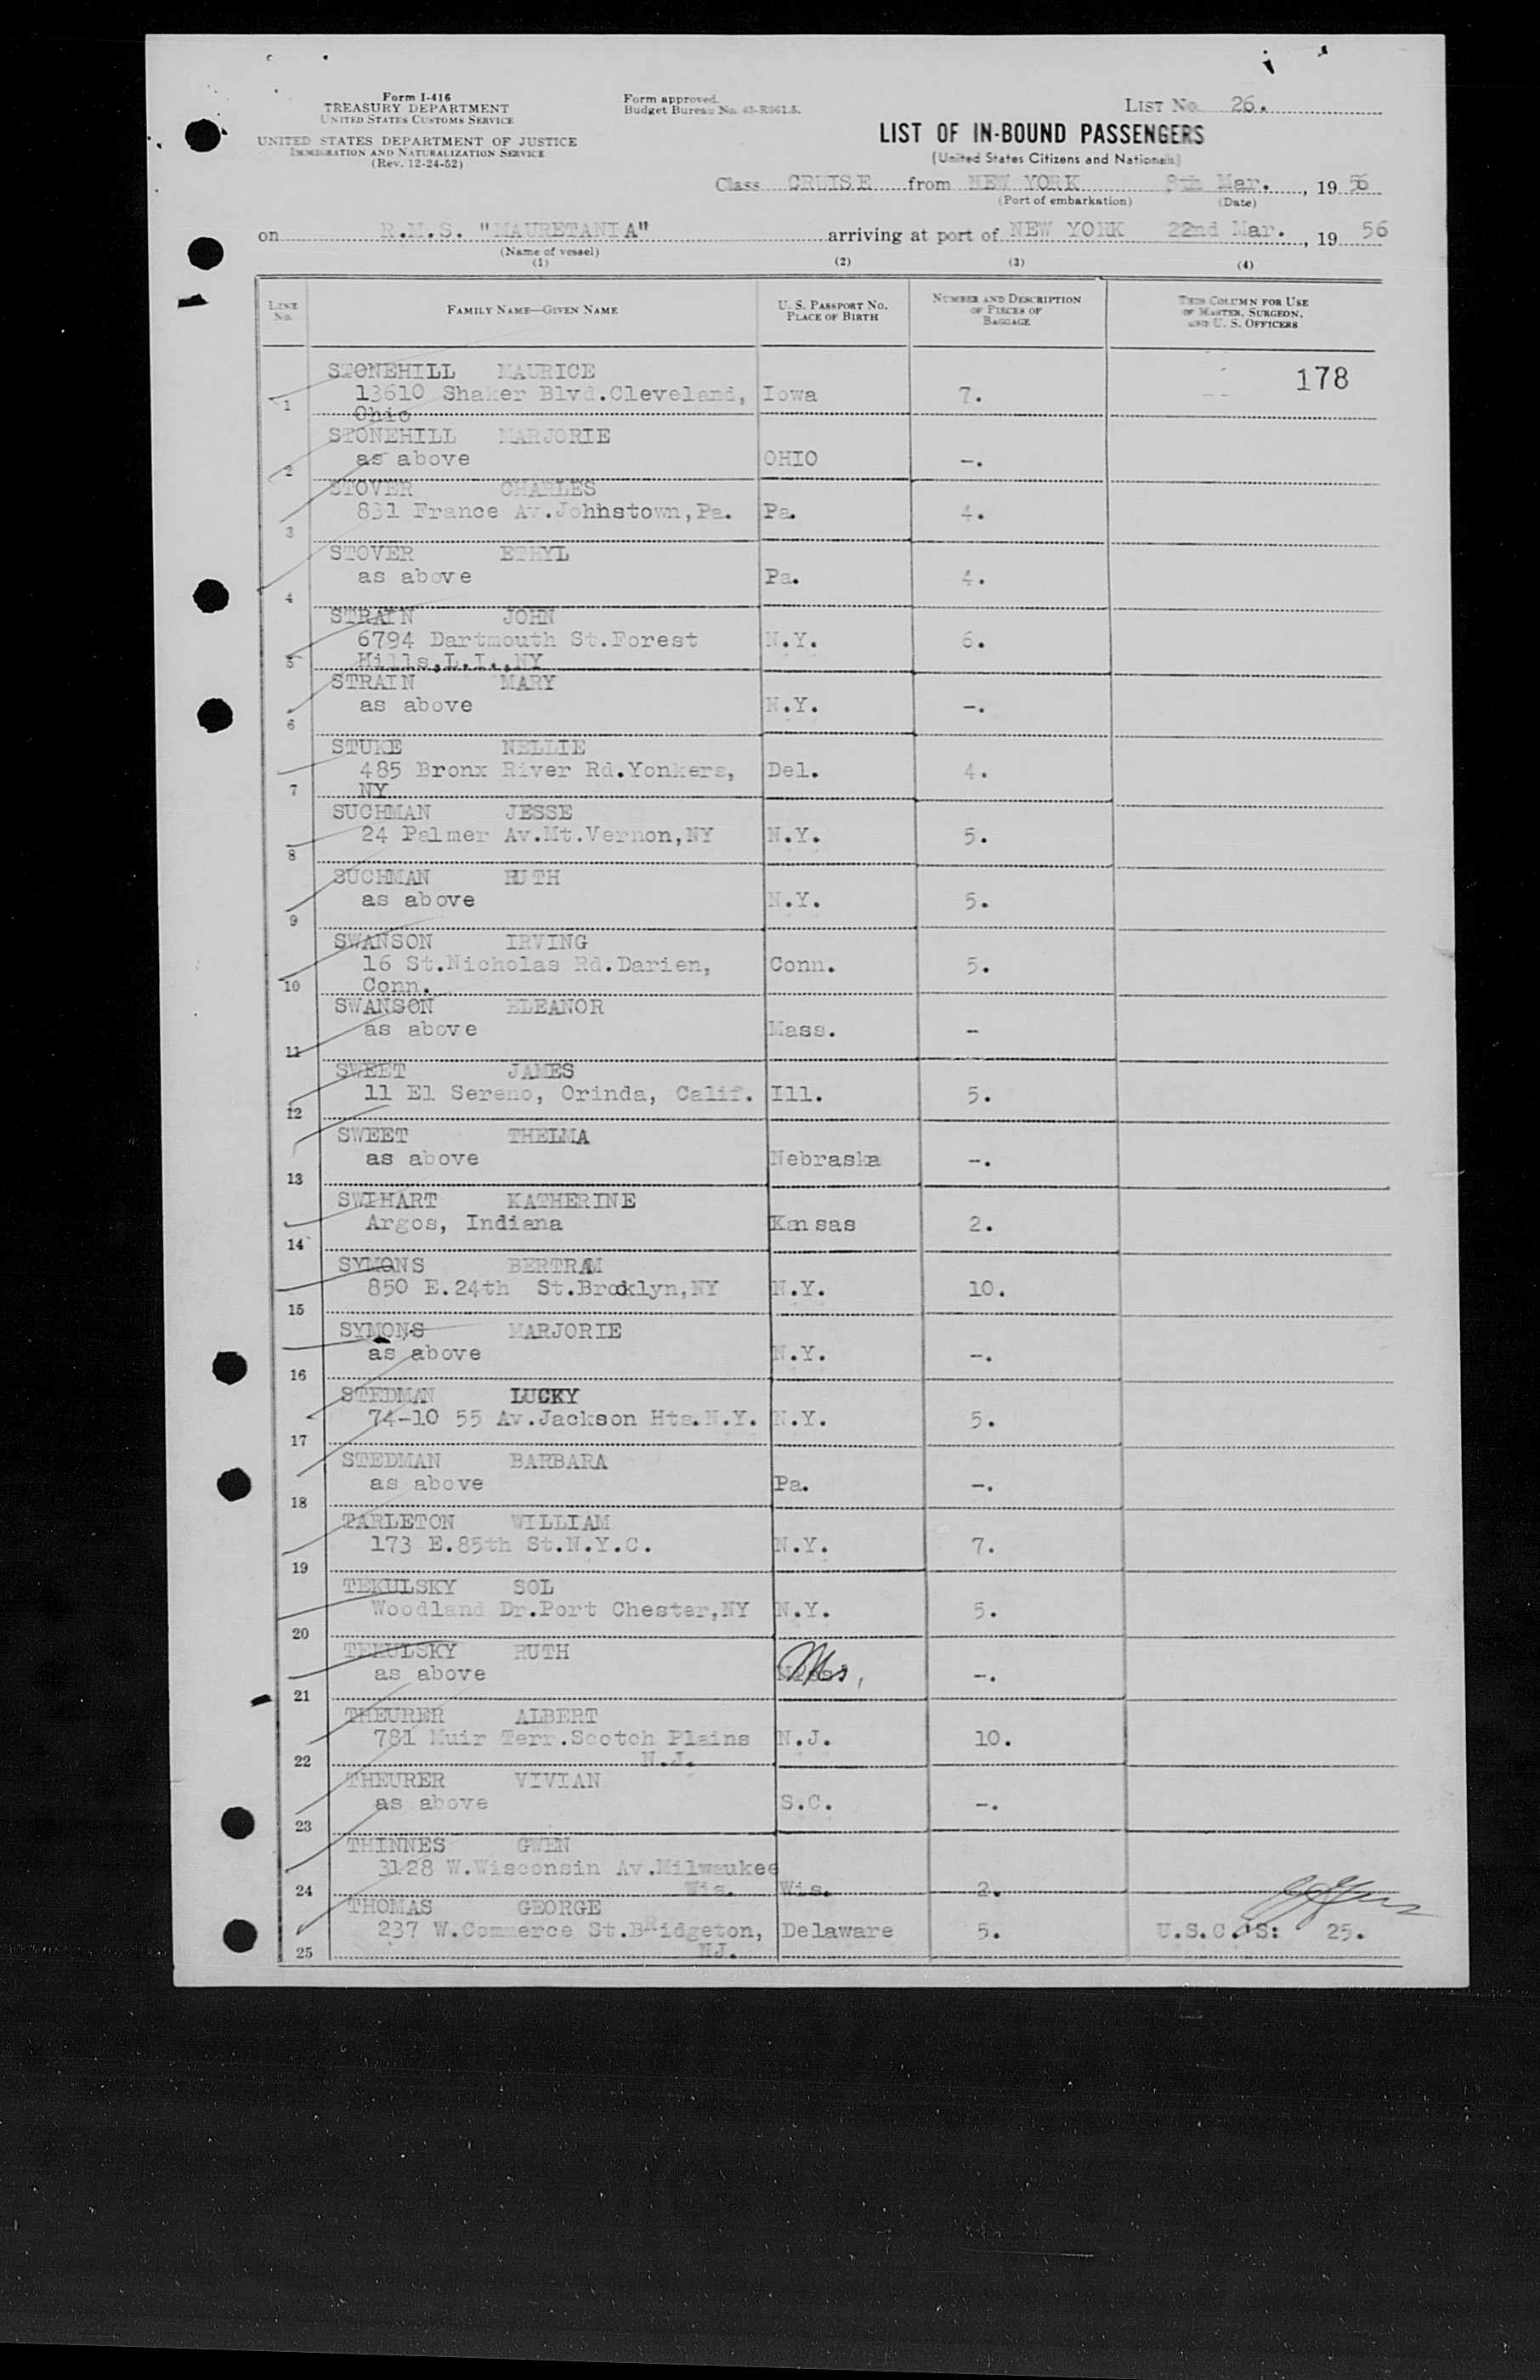 Form I-416
TREASURY DEPARTMENT
UNITED STATES CUSTOMS SERVICE
UNITED STATES DEPARTMENT OF JUSTICE
IMMIGRATION AND NATURALIZATION SERVICE
(Rev. 12-24-52)
Form approved.
Budget Bureau No. 43-R061.5.
LIST No. 26.
LIST OF IN-BOUND PASSENGERS
(United States Citizens and Nationals)
Class CRUISE from NEW YORK 8th Mar. , 19 56
(Port of embarkation) (Date)
on R.M.S. "MAURETANIA" arriving at port of NEW YORK 22nd Mar. , 19 56
(Name of vessel)
(1) (2) (3) (4)
LINE No. FAMILY NAME—GIVEN NAME U. S. PASSPORT NO. PLACE OF BIRTH NUMBER AND DESCRIPTION OF PIECES OF BAGGAGE THIS COLUMN FOR USE OF MASTER, SURGEON, AND U. S. OFFICERS
STONEHILL MAURICE 178
1 13610 Shaker Blvd.Cleveland, Iowa 7.
Ohio
STONEHILL MARJORIE
2 as above OHIO -.
STOVER CHARLES
3 831 France Av.Johhstown,Pa. Pa. 4.
STOVER ETHYL
4 as above Pa. 4.
STRAIN JOHN
5 6794 Dartmouth St.Forest N.Y. 6.
Hills,L.I.,NY
STRAIN MARY
6 as above N.Y. -.
STUKE NELLIE
7 485 Bronx River Rd.Yonkers, Del. 4.
NY
SUCHMAN JESSE
8 24 Palmer Av.Mt.Vernon,NY N.Y. 5.
SUCHMAN RUTH
9 as above N.Y. 5.
SWANSON IRVING
10 16 St.Nicholas Rd.Darien, Conn. 5.
Conn.
SWANSON ELEANOR
11 as above Mass. -
SWEET JAMES
12 11 El Sereno, Orinda, Calif. Ill. 5.
SWEET THELMA
13 as above Nebraska -.
SWIHART KATHERINE
14 Argos, Indiana Kansas 2.
SYMONS BERTRAM
15 850 E.24th St.Brooklyn,NY N.Y. 10.
SYMONS MARJORIE
16 as above N.Y. -.
STEDMAN LUCKY
17 74-10 55 Av.Jackson Hts.N.Y. N.Y. 5.
STEDMAN BARBARA
18 as above Pa. -.
TARLETON WILLIAM
19 173 E.85th St.N.Y.C. N.Y. 7.
TEKULSKY SOL
20 Woodland Dr.Port Chester,NY N.Y. 5.
TEKULSKY RUTH
21 as above -.
THEURER ALBERT
22 781 Muir Terr.Scotch Plains N.J. 10.
N.J.
THEURER VIVIAN
23 as above S.C. -.
THINNES GWEN
3128 W.Wisconsin Av.Milwaukee
24 Wis. Wis. 2.
THOMAS GEORGE
237 W.Commerce St.BRidgeton, Delaware 5. U.S.C.'S: 25.
25 NJ.